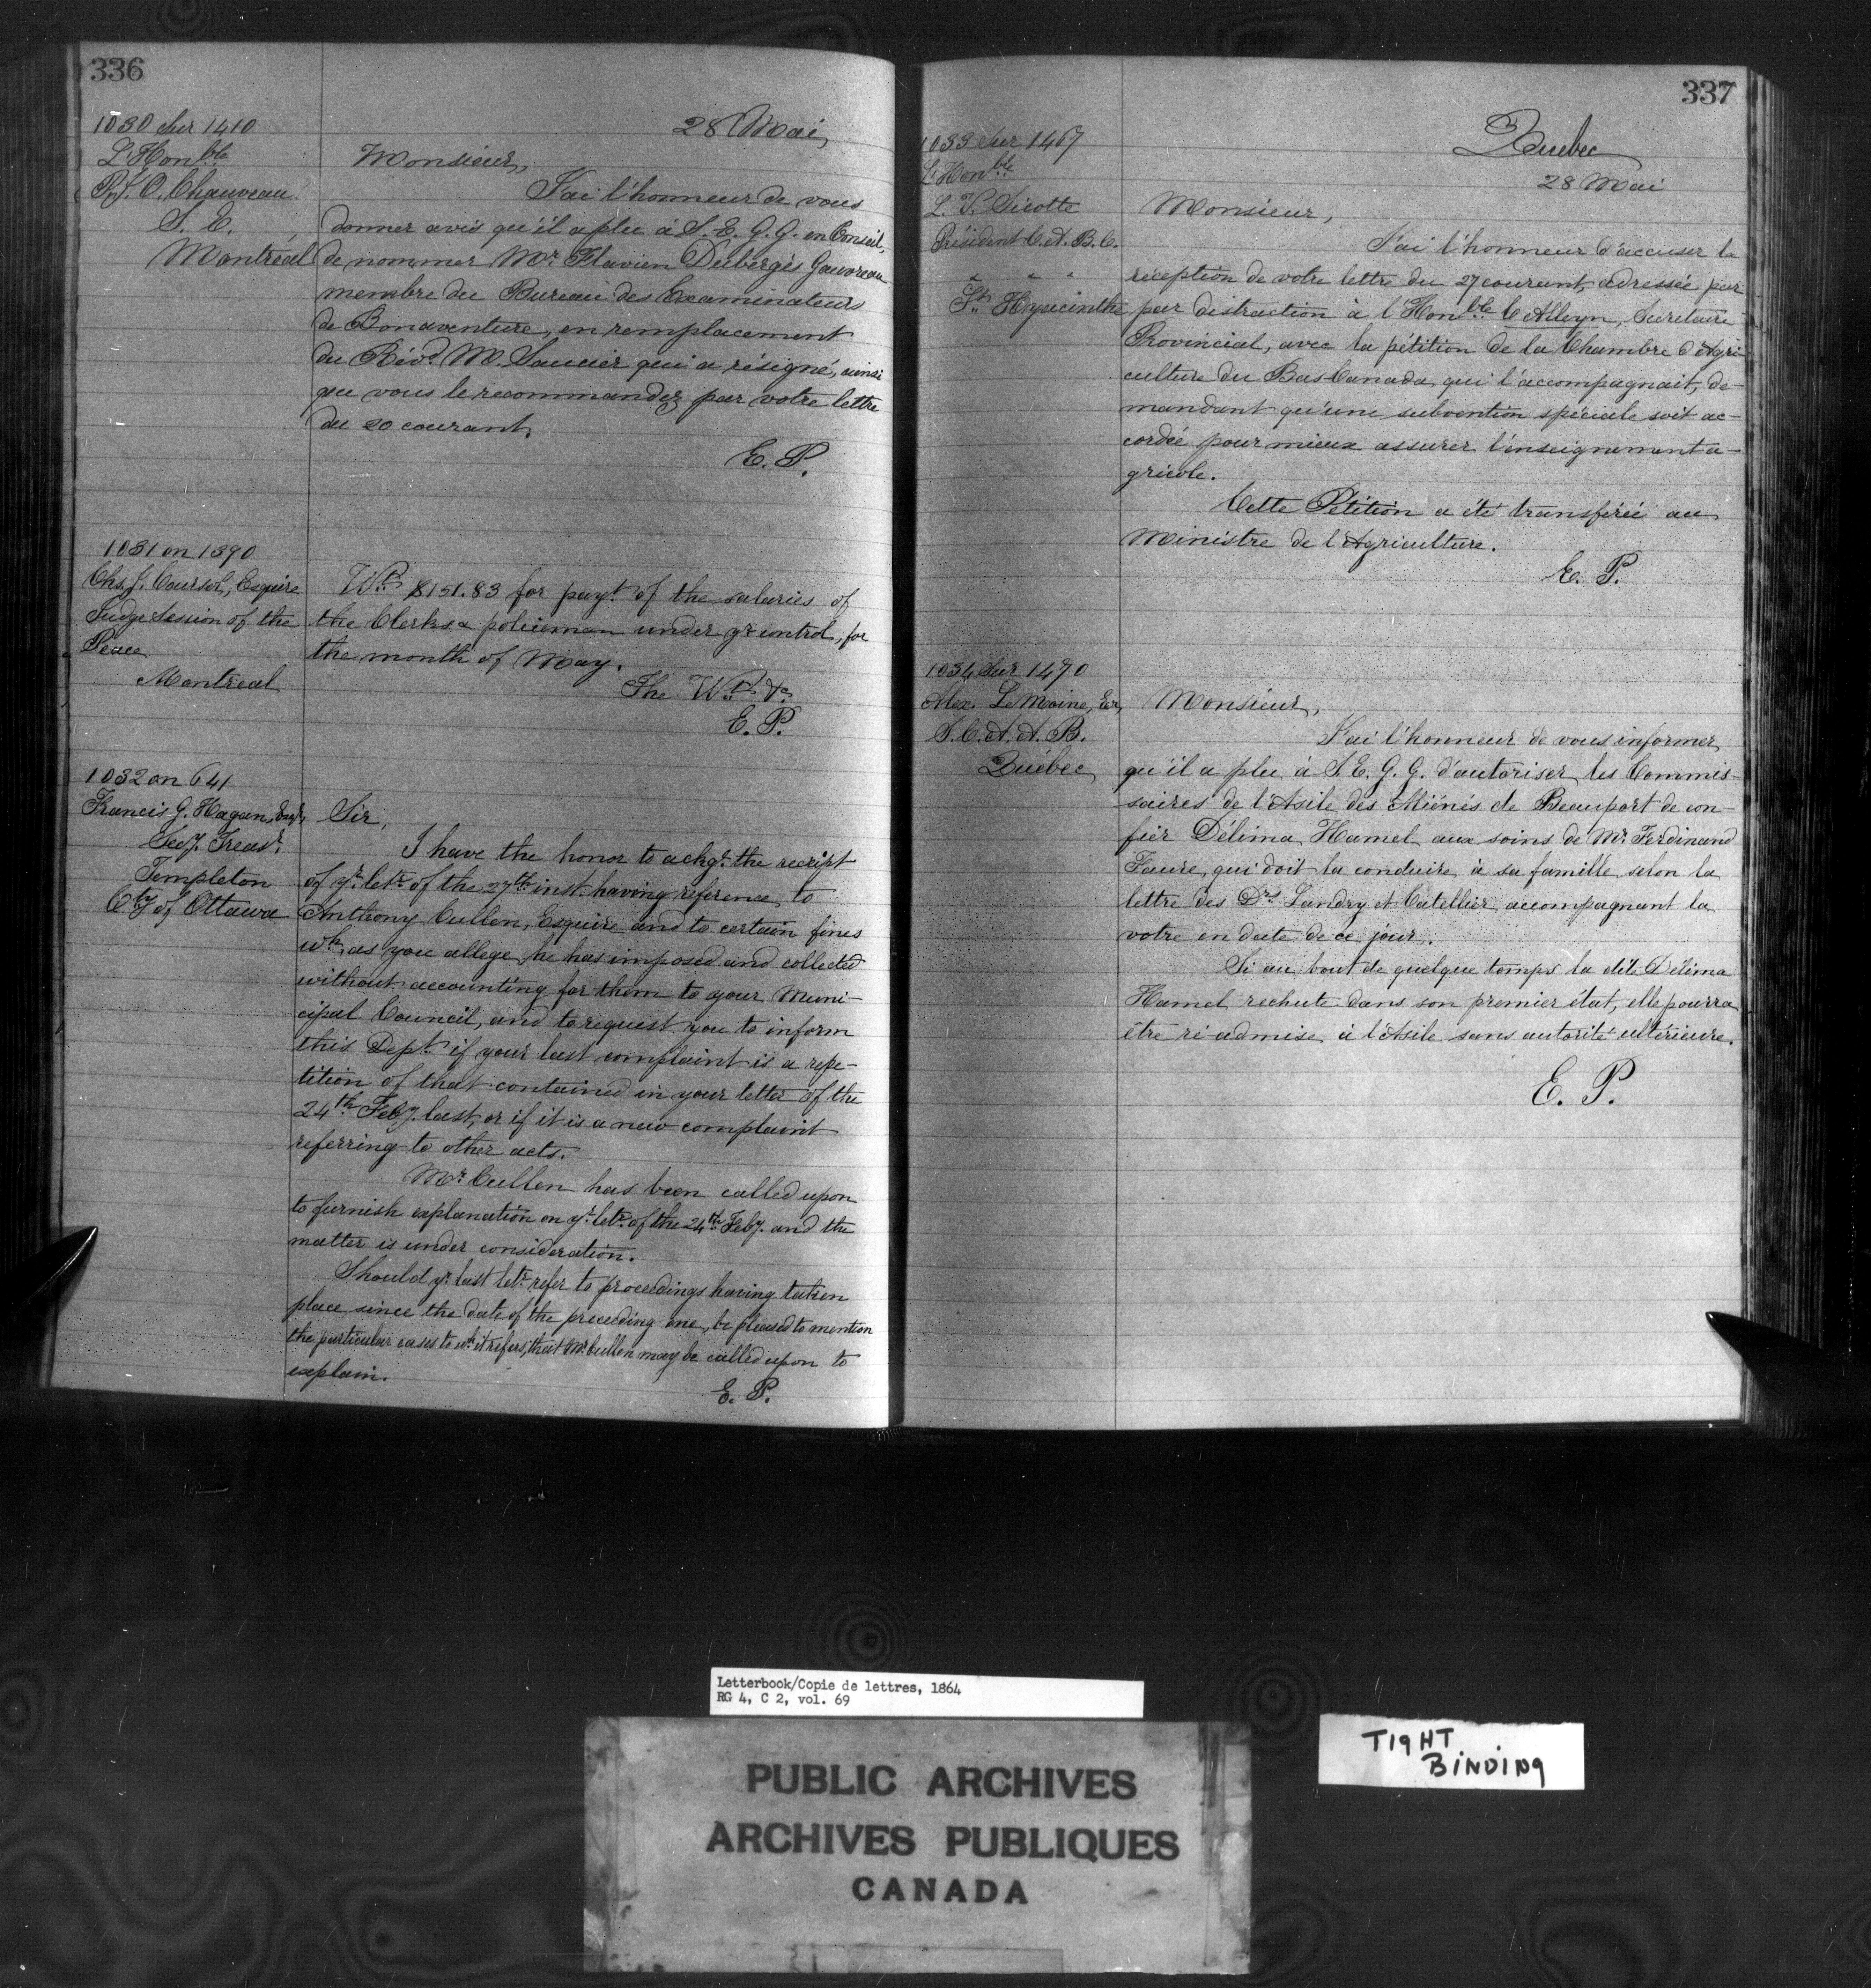 336
28 Mai
1030 sur 1410
L'Honble
P. J. O. Chauveau
S. E.
Montréal
Monsieur,
J'ai l'honneur de vous
donner avis qu'il a plu à S. E. G. G. en Conseil,
de nommer Mr. Flavien Dubergès Gauvreau
membre du Bureau des Examinateurs
de Bonaventure, en remplacement
du Révd. M. Saucier qui a résigné, ainsi
que vous le recommandez par votre lettre
du 20 courant.
E. P.
1031 on 1390
Chs. J. Coursol, Esquire
Judge Session of the
Peace
Montreal
Wt. $151.83 for payt. of the salaries of
the Clerks & policeman under yr control, for
the month of May.
The Wt. &c
E. P.
1032 on 641
Francis G. Hagan, Esqr,
Secy. Treasr.
Templeton
Cty of Ottawa
Sir,
I have the honor to ackge. the receipt
of yr. letr. of the 27th inst. having reference to
Anthony Cullen, Esquire and to certain fines
wh., as you allege, he has imposed and collected
without accounting for them to your Muni-
cipal Council, and to request you to inform
this Dept. if your last complaint is a repe-
tition of that contained in your letter of the
24th Feby. last, or if it is a new complaint
referring to other acts.
Mr Cullen has been called upon
to furnish explanation on yr. letr. of the 24th Feby. and the
matter is under consideration.
Should yr. last letr. refer to proceedings having taken
place since the date of the preceding one, be pleased to mention
the particular cases to wh. it refers, that Mr Cullen may be called upon to
explain.
E. P.
337
Quebec
28 Mai
1033 sur 1467
L'Honble
L. V. Sicotte
Président C. A. B. C.
" " "
St. Hyacinthe
Monsieur,
J'ai l'honneur d'accuser la
réception de votre lettre du 27 courant, adressée par
par distraction à l'Honble. C Alleyn, Secretaire
Provincial, avec la pétition de la Chambre d'Agri-
culture du Bas Canada, qui l'accompagnait, de-
mandant qu'une subvention spéciale soit ac-
cordée pour mieux assurer l'enseignement a-
gricole.
Cette Pétition a été transférée au
Ministre de l'Agriculture.
E. P.
1034 sur 1470
Alex. LeMoine, Er,
S. C. A. A. B.
Québec
Monsieur,
J'ai l'honneur de vous informer
qu'il a plu à S. E. G. G. d'autoriser les Commis-
saires de l'Asile des Aliénés de Beauport de con-
fier Délima Hamel aux soins de Mr Ferdinand
Faure, qui doit la conduire à sa famille selon la
lettre des Drs Landry et Catellier accompagnant la
votre en date de ce jour.
Si au bout de quelque temps la dite Délima
Hamel rechute dans son premier état, elle pourra
être ré admise à l'Asile sans autorité ultérieure.
E. P.
Letterbook/Copie de lettres, 1864
RG 4, C 2, vol. 69
PUBLIC ARCHIVES
ARCHIVES PUBLIQUES
CANADA
TIGHT
BINDING